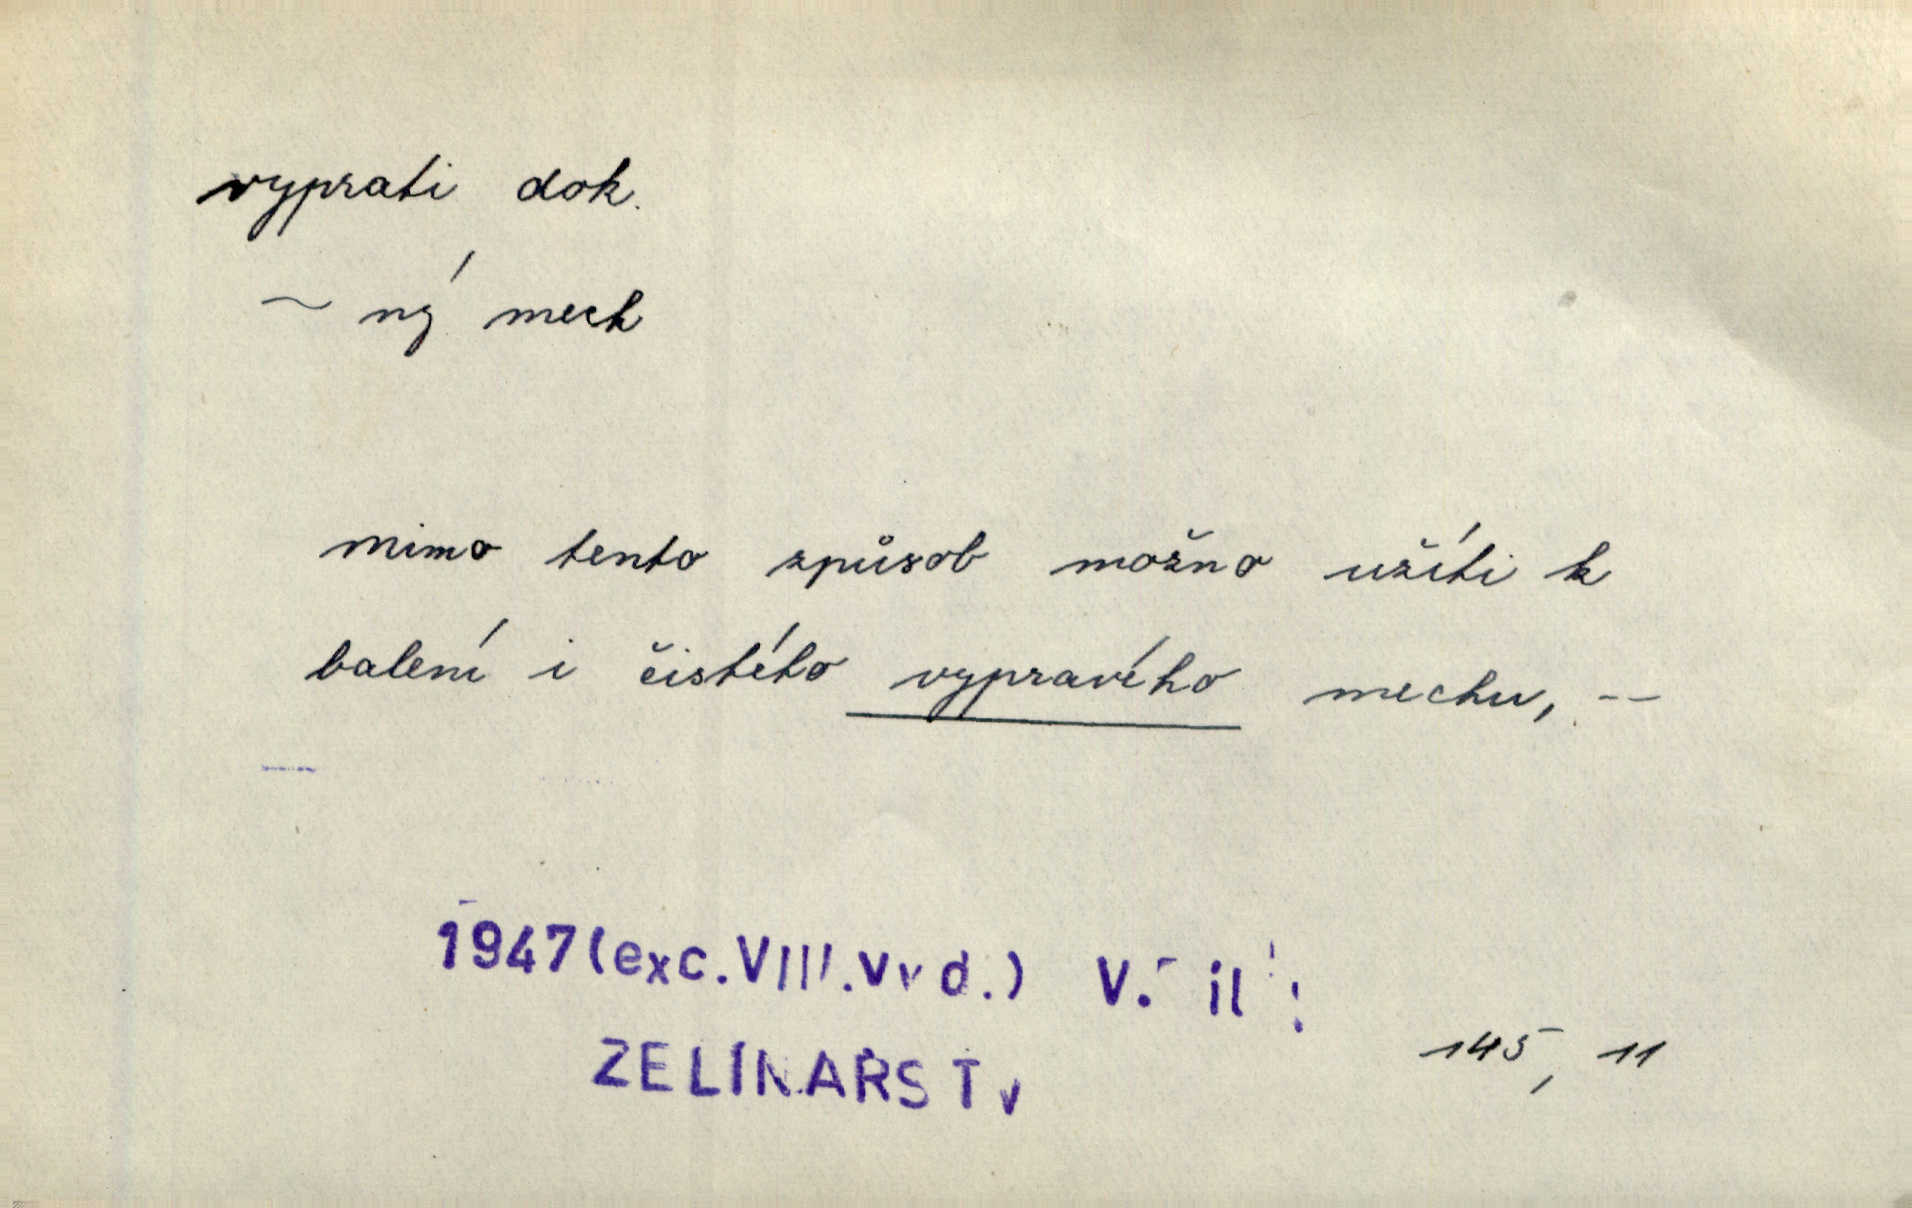 vyprati dok.
~ ný mech
mimo tento způsob možno užíti k
balení i čistého vypravého mechu, --
1947 (exc. VIII. vyd.) V.
ZELINÁŘSTV
145, 11